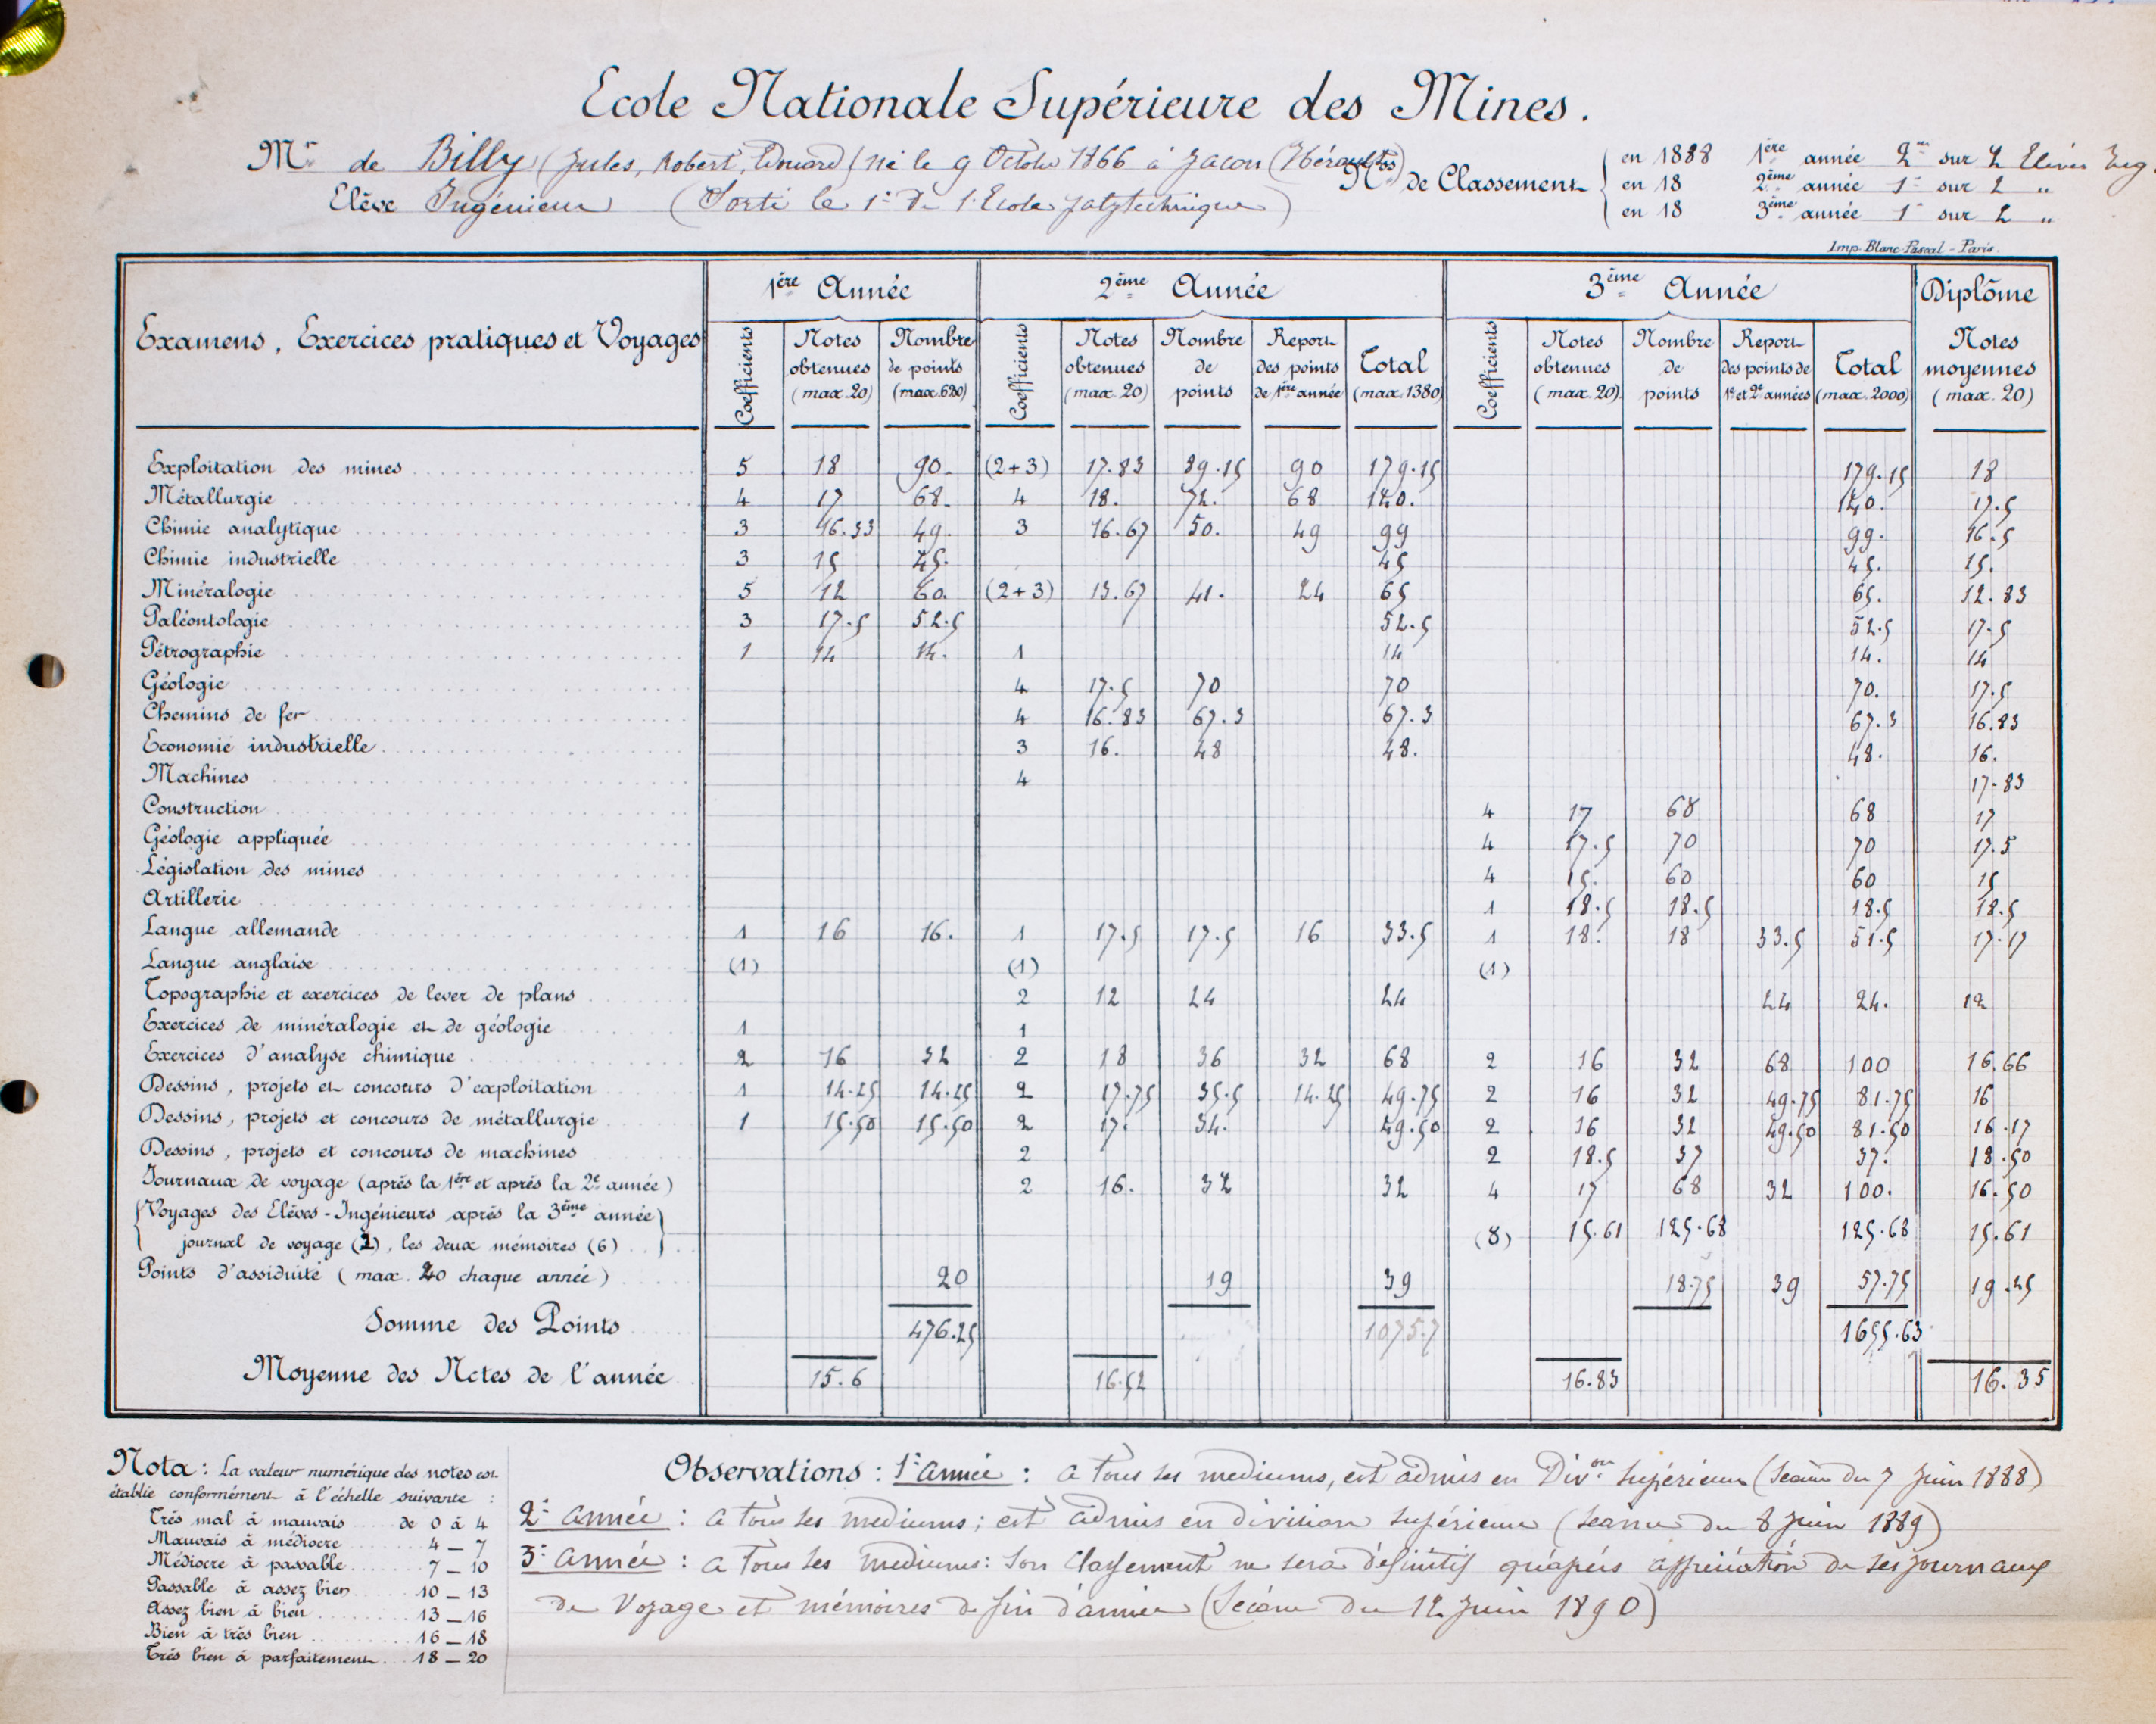 Ecole Nationale Supérieure des Mines.
Mr de Billy (Jules, Robert, Edouard) né le 9 Octobre 1866 à Jacou (Hérault)
Elève Ingénieur (Sorti le 1er de l'Ecole polytechnique)
Nos de Classement
en 1888 1ère année 2me sur 2 Elèves Ing.
en 18 2ème année 1er sur 2 "
en 18 3ème année 1er sur 2 "
Imp. Blanc-Pascal - Paris.
Examens, Exercices pratiques et Voyages
1ère Année 2ème Année 3ème Année Diplôme
Coefficients Notes obtenues (max. 20) Nombre de points (max. 620) Coefficients Notes obtenues (max. 20) Nombre de points Report des points de 1ère année Total (max. 1380) Coefficients Notes obtenues (max. 20) Nombre de points Report des points de 1e et 2e années Total (max. 2000) Notes moyennes (max. 20)
Exploitation des mines 5 18 90. (2+3) 17.83 89.15 90 179.15 179.15 18
Métallurgie 4 17 68. 4 18. 72. 68 140. 140. 17.5
Chimie analytique 3 16.33 49. 3 16.67 50. 49 99 99. 16.5
Chimie industrielle 3 15 45. 45 45. 15.
Minéralogie 5 12 60. (2+3) 13.67 41. 24 65 65. 12.83
Paléontologie 3 17.5 52.5 52.5 52.5 17.5
Pétrographie 1 14 14. 1 14 14. 14
Géologie 4 17.5 70 70 70. 17.5
Chemins de fer 4 16.83 67.3 67.3 67.3 16.83
Economie industrielle 3 16. 48 48. 48. 16.
Machines 4 17.83
Construction 4 17 68 68 17
Géologie appliquée 4 17.5 70 70 17.5
Législation des mines 4 15. 60 60 15
Artillerie 1 18.5 18.5 18.5 18.5
Langue allemande 1 16 16. 1 17.5 17.5 16 33.5 1 18. 18 33.5 51.5 17.17
Langue anglaise (1) (1) (1)
Topographie et exercices de lever de plans 2 12 24 24 24 24. 12
Exercices de minéralogie et de géologie 1 1
Exercices d'analyse chimique 2 16 32 2 18 36 32 68 2 16 32 68 100 16.66
Dessins, projets et concours d'exploitation 1 14.25 14.25 2 17.75 35.5 14.25 49.75 2 16 32 49.75 81.75 16
Dessins, projets et concours de métallurgie 1 15.50 15.50 2 17. 34. 49.50 2 16 32 49.50 81.50 16.17
Dessins, projets et concours de machines 2 2 18.5 37 37. 18.50
Journaux de voyage (après la 1ère et après la 2e année) 2 16. 32 32 4 17 68 32 100. 16.50
Voyages des Elèves-Ingénieurs après la 3ème année
journal de voyage (2), les deux mémoires (6) (8) 15.61 125.68 125.68 15.61
Points d'assiduité (max. 20 chaque année) 20 19 39 18.75 39 57.75 19.25
Somme des Points 476.25 1075.7 1655.63
Moyenne des Notes de l'année 15.6 16.52 16.83 16.35
Nota: La valeur numérique des notes est
établie conformément à l'échelle suivante :
Très mal à mauvais de 0 à 4
Mauvais à médiocre 4 _ 7
Médiocre à passable 7 _ 10
Passable à assez bien 10 _ 13
Assez bien à bien 13 _ 16
Bien à très bien 16 _ 18
Très bien à parfaitement 18 _ 20
Observations : 1e année : a tous ses mediums, est admis en Divon supérieure (Séance du 7 Juin 1888)
2e année : a tous ses mediums; est admis en division supérieure (séance du 8 Juin 1889)
3e année : a tous ses mediums: son classement ne sera définitif qu'après appréciation de ses journaux
de voyage et mémoires de fin d'année (Séance du 12 Juin 1890)